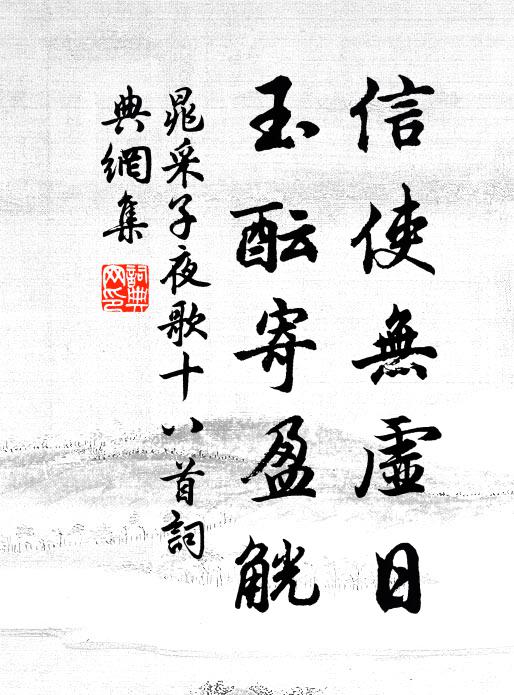 信使無虛日
玉酝寄盈觥
晁采子夜歌十八首詞
典網集
詞典网印